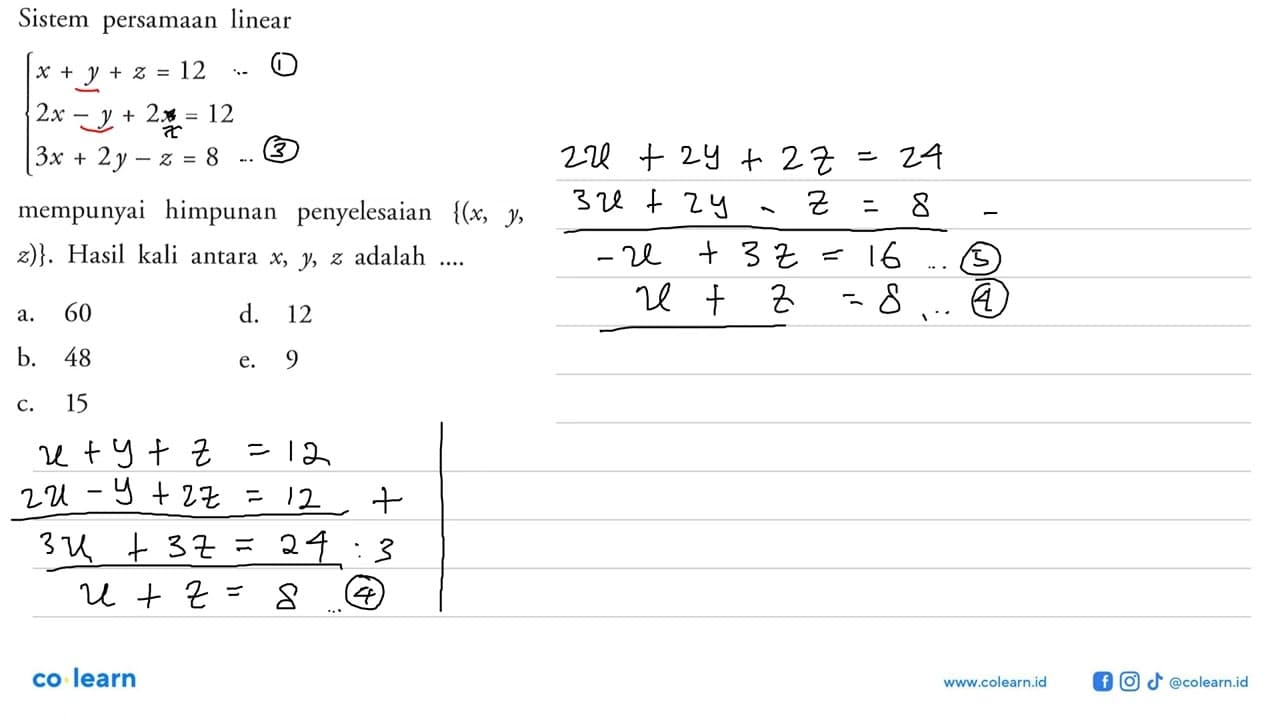 Sistem persamaan linear
x + y + z = 12 ... ①
2x − y + 2z = 12
3x + 2y − z = 8 ... ③
mempunyai himpunan penyelesaian {(x, y,
z)}. Hasil kali antara x, y, z adalah ....
a. 60 d. 12
b. 48 e. 9
c. 15
x + y + z = 12
2x - y + 2z = 12 +
3x + 3z = 24 : 3
x + z = 8 ... ④
2x + 2y + 2z = 24
3x + 2y - z = 8 -
-x + 3z = 16 ... ⑤
x + z = 8 ... ④
co learn
www.colearn.id @colearn.id